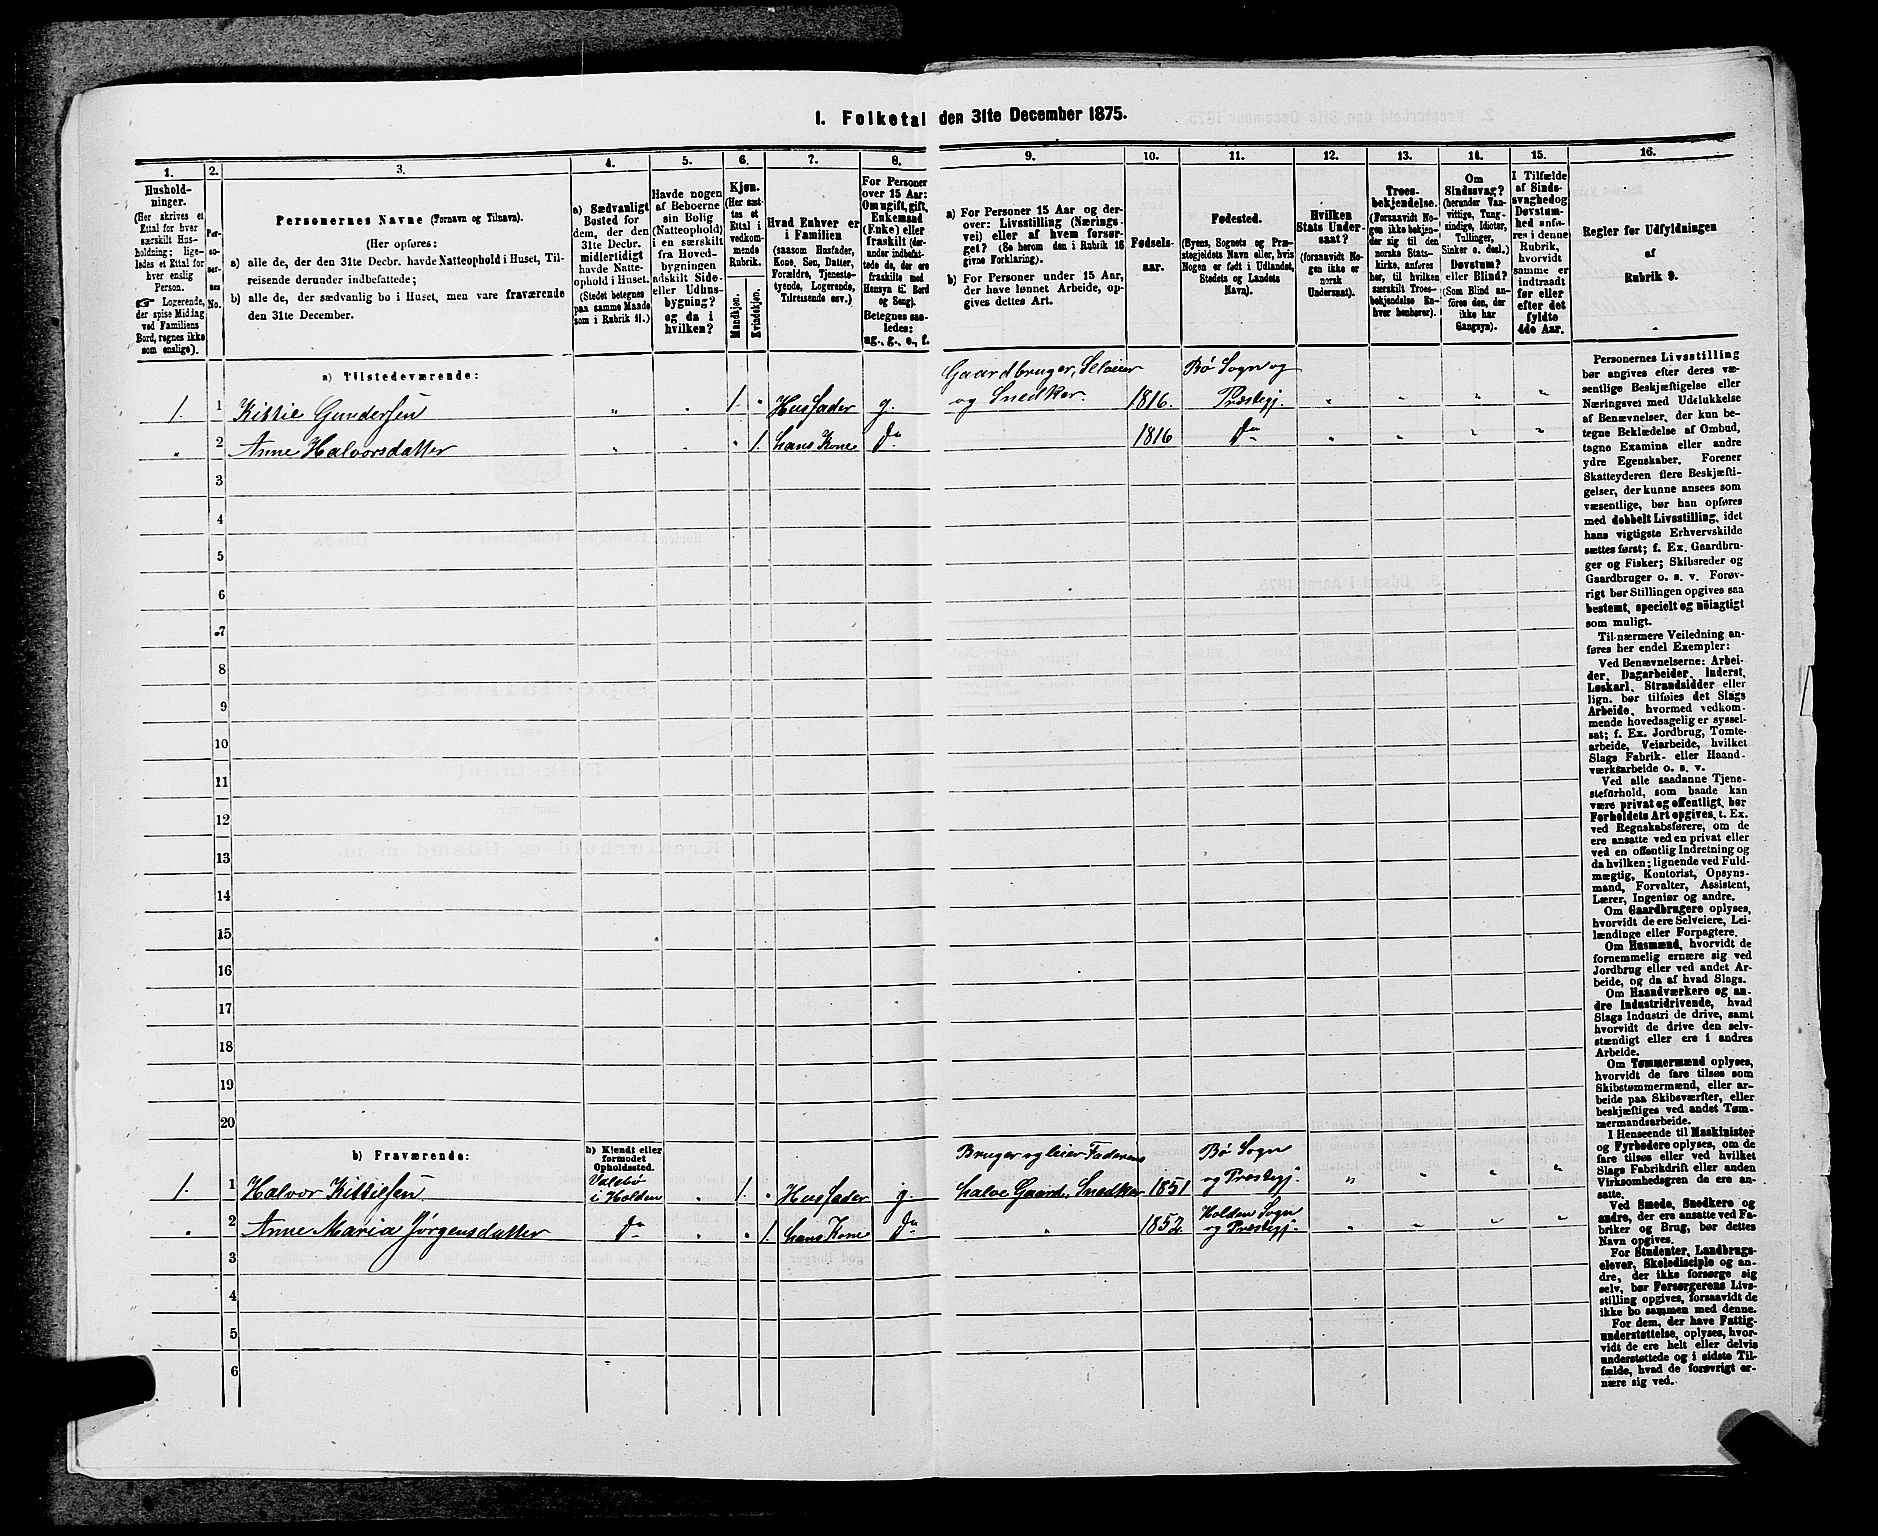 I. Folketal den 31te December 1875.
1. 2. 3. 4. 5. 6. 7. 8. 9. 10. 11. 12. 13. 14. 15. 16.
Hushold-
ninger.
(Her skrives et
Ettal for hver
særskilt Hus-
holdning; lige-
ledes et Ettal for
hver enslig
Person.
☞ Logerende,
der spise Middag
ved Familiens
Bord, regnes ikke
som enslige).
Per-
so-
ner-
nes
No.
Personernes Navne (Fornavn og Tilnavn).
(Her opføres:
a) alle de, der den 31te Decbr. havde Natteophold i Huset, Til-
reisende derunder indbefattede;
b) alle de, der sædvanlig bo i Huset, men vare fraværende
den 31te December.
a) Sædvanligt
Bosted for
dem, der den
31te Decbr.
midlertidigt
havde Natte-
ophold i Huset.
(Stedet betegnes
paa samme Maade
som i Rubrik 11.)
Havde nogen
af Beboerne
sin Bolig
(Natteophold)
i en særskilt
fra Hoved-
bygningen
adskilt Side-
eller Udhus-
bygning?
og da i
hvilken?
Kjøn.
(Her sæt-
tes et
Ettal i
vedkom-
mende
Rubrik.
Mandkjøn.
Kvindekjøn.
Hvad Enhver er
i Familien
(saasom Husfader,
Kone, Søn, Datter,
Forældre, Tjeneste-
tyende, Logerende,
Tilreisende osv.)
For Personer
over 15 Aar:
Om ugift, gift,
Enkemand
(Enke) eller
fraskilt (der-
under indbefat-
tede de, der ere
fraskilte med
Hensyn til Bord
og Seng).
Betegnes saa-
ledes:
ug., g., e., f.
a) For Personer 15 Aar og der-
over: Livsstilling (Nærings-
vei) eller af hvem forsør-
get? (Se herom den i Rubrik 16
givne Forklaring).
b) For Personer under 15 Aar,
der have lønnet Arbeide, op-
gives dettes Art.
Fødsels-
aar.
Fødested.
(Byens, Sognets og Præ-
stegjeldets Navn eller, hvis
Nogen er født i Udlandet,
Stedets og Landets
Navn).
Hvilken
Stats Under-
saat?
(forsaavidt No-
gen ikke er
norsk
Undersaat).
Troes-
bekjendelse.
(Forsaavidt No-
gen ikke bekjen-
der sig til den
norske Stats-
kirke, anføres
her, til hvilken
særskilt Troes-
bekjendelse En-
hver henhører).
Om
Sindssvag?
(herunder Van-
vittige, Tung-
sindige, Idioter,
Tullinger,
Sinker o. desl.).
Døvstum?
eller Blind?
(Som Blind an-
føres den, der
ikke har
Gangsyn).
I Tilfælde
af Sinds-
svaghed og
Døvstum-
hed anfø-
res i denne
Rubrik,
hvorvidt
samme er
indtraadt
før eller
efter det
fyldte
4de Aar.
Regler for Udfyldningen
af
Rubrik 9.
a) Tilstedeværende:
Gaardbruger, Seleier Bø Sogn og
1. 1 Kittil Gundersen " " 1. " Husfader g. og Snedker. 1816. Præstegj. " " " "
" 2 Anne Halvorsdatter " " " 1. hans Kone do 1816 do " " " "
3
4
5
6
7
8
9
10
11
12
13
14
15
16
17
18
19
20
b) Fraværende:
b) Kjendt eller
formodet
Opholdssted.
Valebø Bruger og leier Faderens Bø Sogn
1. 1 Halvor Kittilsen i Holden " 1. " Husfader g. halve Gaard, Snedker 1851 og Præstegj. " " " "
Holden Sogn
" 2 Anne Maria Jørgensdatter do " " 1. hans Kone do " 1852. og Præstegj. " " " "
3
4
5
6
Personernes Livsstilling
bør angives efter deres væ-
sentlige Beskjæftigelse eller
Næringsvei med Udelukkelse
af Benævnelser, der kun be-
tegne Beklædelse af Ombud,
tagne Examina eller andre
ydre Egenskaber. Forener
Skatteyderen flere Beskjæfti-
gelser, der kunne ansees som
væsentlige, bør han opføres
med dobbelt Livsstilling, idet
hans vigtigste Erhvervskilde
sættes først; f. Ex. Gaardbru-
ger og Fisker; Skibsreder og
Gaardbruger o. s. v. Forøv-
rigt bør Stillingen opgives saa
bestemt, specielt og nöiagtigt
som muligt.
Til nærmere Veiledning an-
føres her endel Exempler:
Ved Benævnelserne: Arbei-
der, Dagarbeider, Inderst,
Løskarl, Strandsidder eller
lign. bør tilføies det Slags
Arbeide, hvormed vedkom-
mende hovedsagelig er syssel-
sat; f. Ex. Jordbrug, Tomte-
arbeide, Veiarbeide, hvilket
Slags Fabrik- eller Haand-
værksarbeide o. s. v.
Ved alle saadanne Tjene-
steforhold, som baade kan
være privat og offentligt, bør
Forholdets Art opgives, t. Ex.
ved Regnskabsførere, om de
ere ansatte ved en privat eller
ved en offentlig Indretning og
da hvilken; lignende ved Fuld-
mægtig, Kontorist, Opsyns-
mand, Forvalter, Assistent,
Lærer, Ingeniør og andre.
Om Gaardbrugere oplyses,
hvorvidt de ere Selveiere, Lei-
lændinge eller Forpagtere.
Om Husmænd, hvorvidt de
fornemmelig ernære sig ved
Jordbrug eller ved andet Ar-
beide, og da af hvad Slags.
Om Haandværkere og an-
dre Industridrivende, hvad
Slags Industri de drive, samt
hvorvidt de drive den selv-
stændigt eller ere i andres
Arbeide.
Om Tømmermænd oplyses,
hvorvidt de fare tilsøs som
Skibstømmermænd, eller ar-
beide paa Skibsværfter, eller
beskjæftiges ved andet Tøm-
mermandsarbeide.
I Henseende til Maskinister
og Fyrbødere oplyses, om de
fare tilsøs eller ved hvilket
Slags Fabrikdrift eller anden
Virksomhedsgren de ere an-
satte.
Ved Smede, Snedkere og
andre, der ere ansatte ved Fa-
briker og Brug, bør dettes
Navn opgives.
For Studenter, Landbrugs-
elever, Skoledisciple og an-
dre, der ikke forsørge sig
selv, bør Forsørgerens Livs-
stilling opgives, forsaavidt de
ikke bo sammen med denne.
For dem, der have Fattig-
understøttelse, oplyses, hvor-
vidt de ere helt eller delvis
understøttede og i sidste Til-
fælde, hvad de forøvrigt er-
nære sig ved.